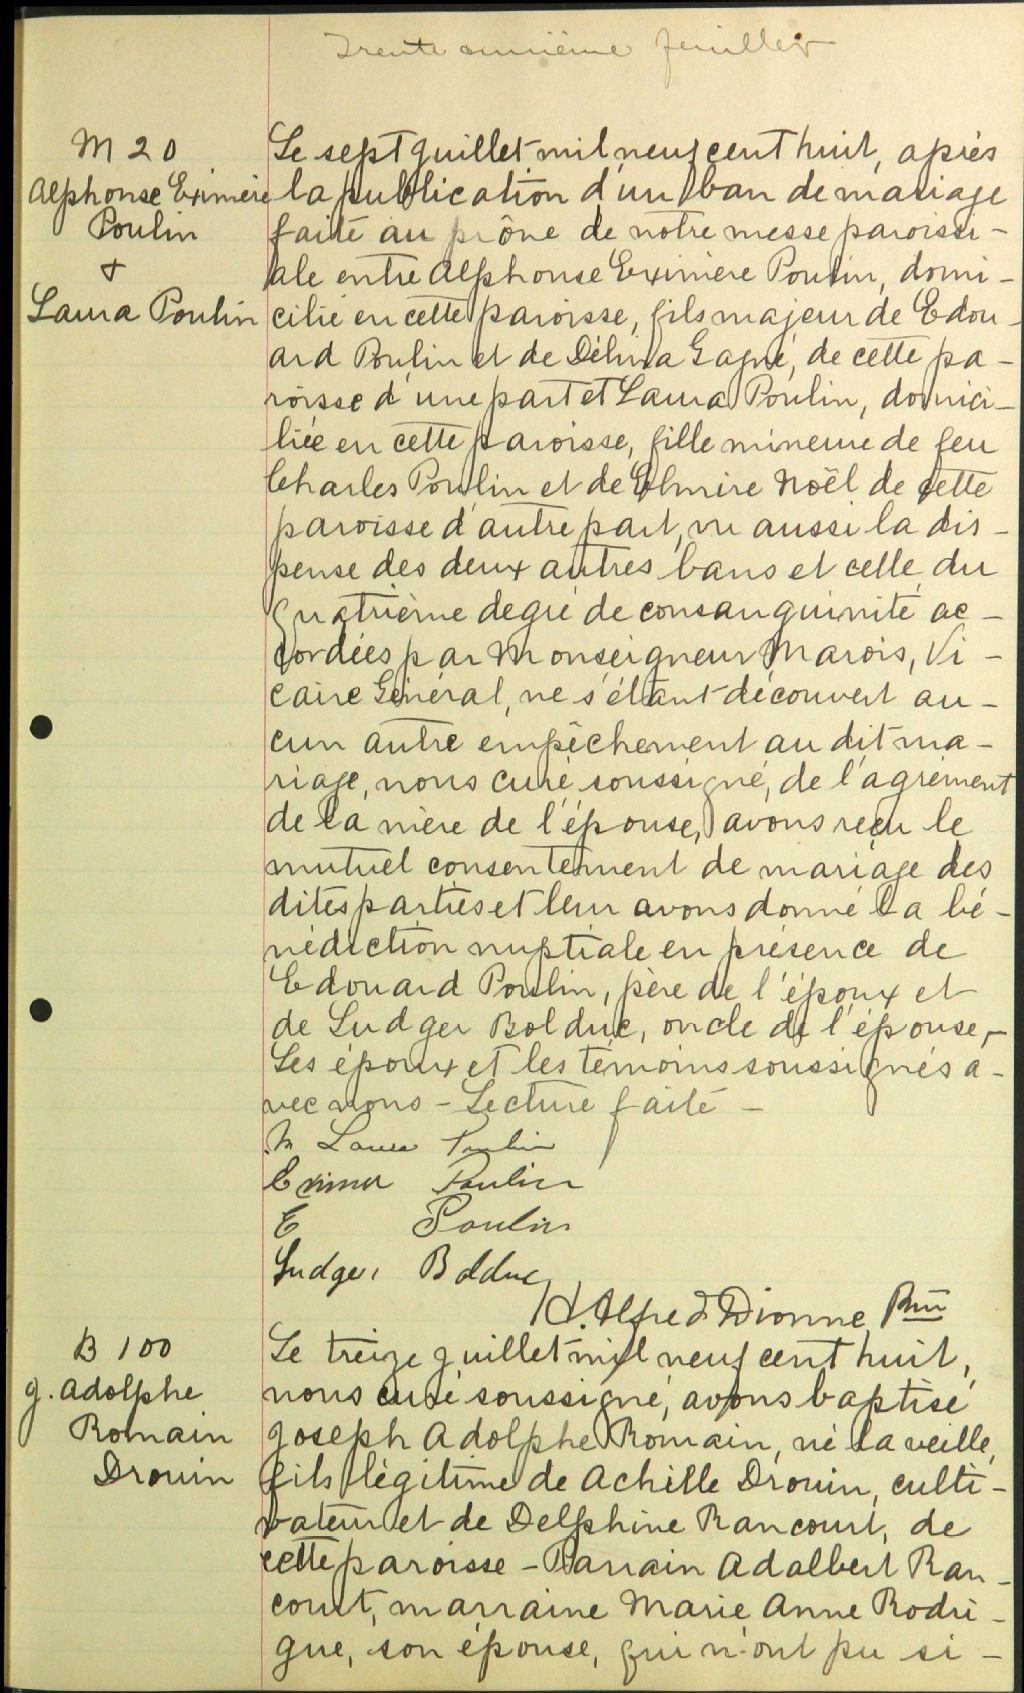 Trente onzième feuillet
M 20
Alphonse Eximère
Poulin
+
Laura Poulin
Le sept Juillet mil neuf cent huit, après
la publication d'un ban de mariage
faite au prône de notre messe paroissi-
ale entre Alphonse Eximère Poulin, domi-
cilié en cette paroisse, fils majeur de Edou-
ard Poulin et de Délina Gagné, de cette pa-
roisse d'une part et Laura Poulin, domici-
liée en cette paroisse, fille mineure de feu
Charles Poulin et de Elmire Noël de cette
paroisse d'autre part, vu aussi la dis-
pense des deux autres bans et celle du
quatrième degré de consanguinité ac-
cordées par Monseigneur Marois, Vi-
caire Général, ne s'étant découvert au-
cun autre empêchement au dit ma-
riage, nous curé soussigné, de l'agrément
de la mère de l'épouse, avons reçu le
mutuel consentement de mariage des
dites parties et leur avons donné la bé-
nédiction nuptiale en présence de
Edouard Poulin, père de l'époux et
de Ludger Bolduc, oncle de l'épouse,-
Les époux et les témoins soussignés a-
vec nous - Lecture faite -
M Laura Poulin
Eximer Poulin
E Poulin
Ludger Bolduc
H. Alfred Dionne Ptre
B 100
J. Adolphe
Romain
Drouin
Le treize Juillet mil neuf cent huit,
nous curé soussigné, avons baptisé
Joseph Adolphe Romain, né la veille,
fils légitime de Achille Drouin, culti-
vateur et de Delphine Rancourt, de
cette paroisse - Parrain Adalbert Ran-
court, marraine Marie Anne Rodri-
gue, son épouse, qui n'ont pu si-